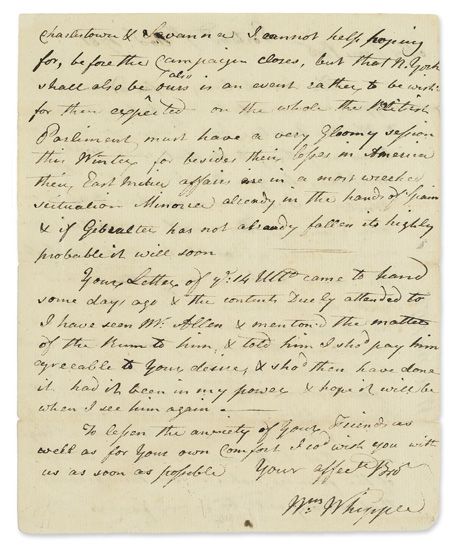 Charlestown & Savanna I cannot help hoping
for, before the Campaign closes, but that N. York
shall also be ours is an event rather to be wish'd
for then expected on the whole the British
Parliment must have a very gloomy session
this Winter for besides their losses in America
their East India affairs are in a most wreched
situation Minorca already in the hands of Spain
& if Gibralter has not already fallen its highly
probable it will soon
Your Letter of ye. 14 Ulto. came to hand
some days ago & the contents Duely attended to
I have seen Mr. Allen & mention'd the matter
of the Rum to him, & told him I sho'd pay him
agreeable to Your desire, & sho'd then have done
it had it been in my power & hope it will be
when I see him again.
To lessen the anxiety of Your Friends as
well as for Your own Comfort I co'd wish you with
us as soon as possible Your affect. Bro
Wm. Whipple